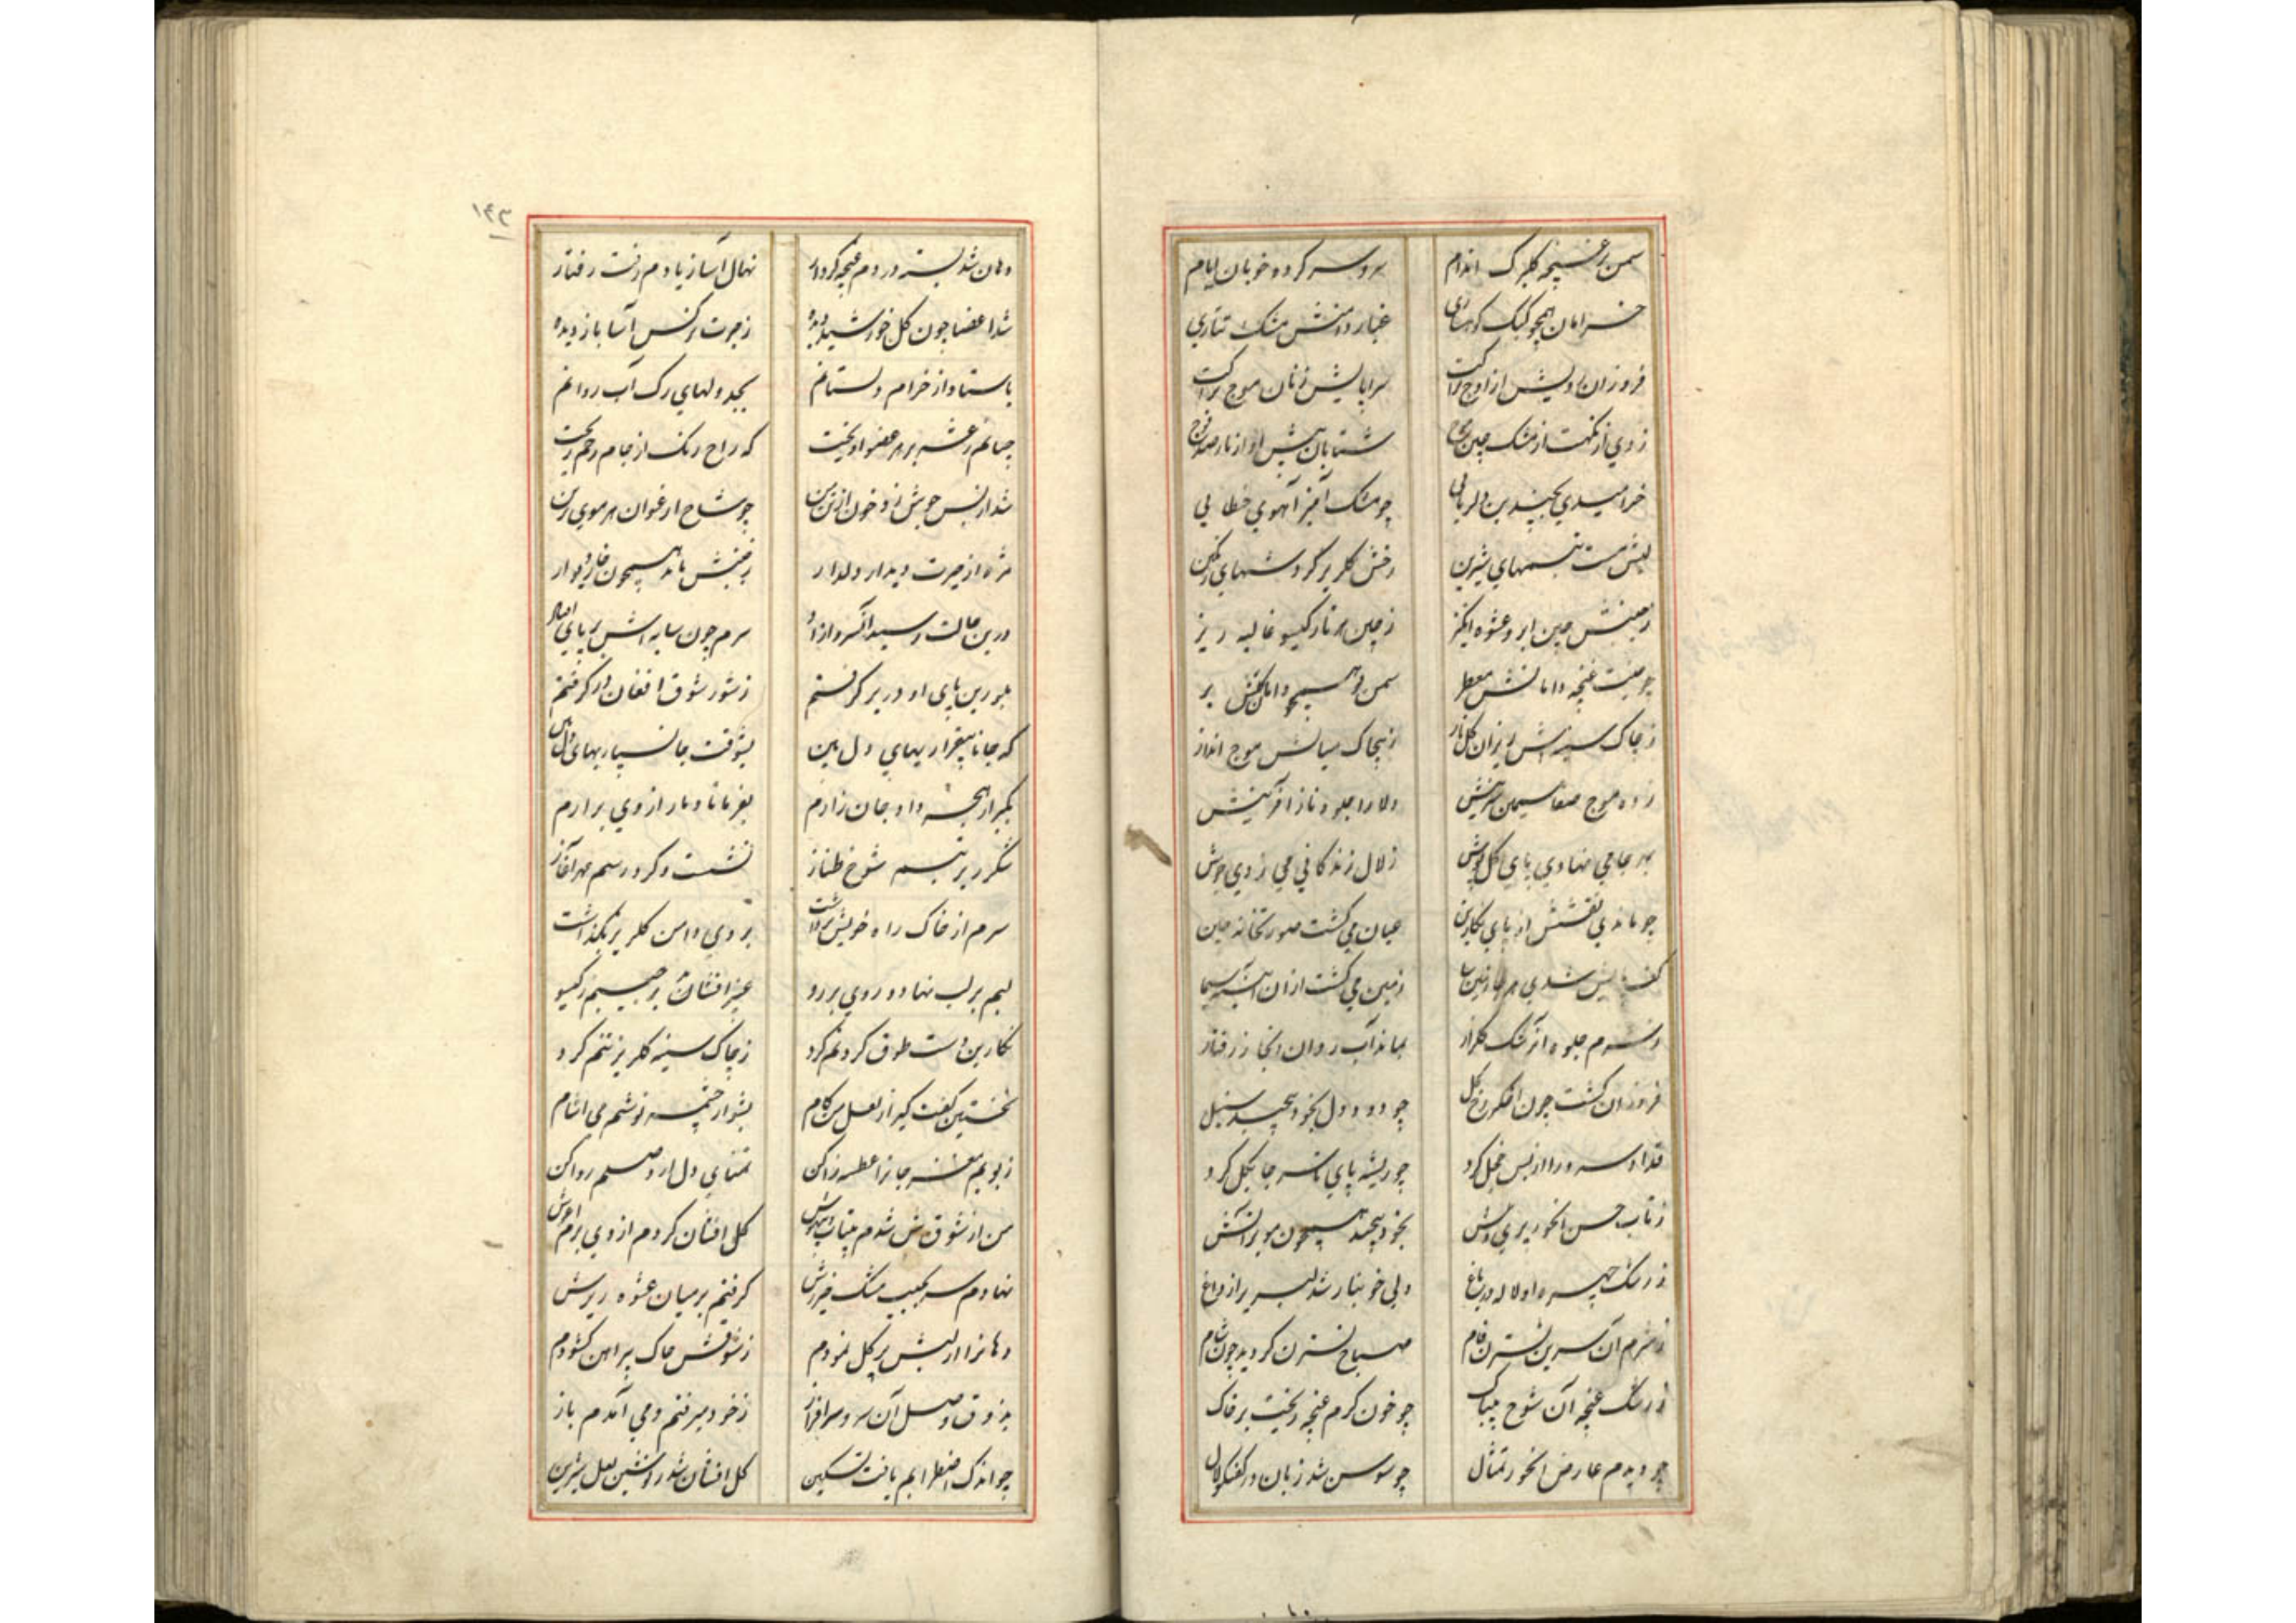 سمن بر غنچه گلبرگ اندام سر و سر کرده خوبان ایام
خرامان همچو کبک کوهساری غبار دامنش مشک تتاری
فروزان رویش از اوج سراپایش زنان موج
زدی از نکهت از مشک چین شتابان پیش او از ناز صد
خرامیدی بچندین دلربایی چو مشک آمیز آهوی خطایی
لبش مست تبسمهای شیرین رخش گلریز گردشهای رنگین
ز جنبش چین ابرو عشوه انگیز ز چین هر تار گیسو غالیه ریز
چو جیب غنچه دامانش معطر سمن بو همچو دامان بر
ز چاک سینه اش ریزان گل ناز ز پیچاک میانش موج انداز
زده موج صفا سیمین دلارا جلوه ناز آفرینش
بهر جا می نهادی پای گل پوش زلال زندگانی می زدی جوش
چو ماندی نقشش از پای نگارین عیان می گشت صورتخانه چین
کف پایش شدی هر جا زمین سا زمین می گشت ازان آیینه سیما
ز شرم جلوه آن رشک گلزار بماند آب روان آنجا ز رفتار
فروزان گشت چون اخگر رخ گل چو دود دل بخود پیچید سنبل
قد او سرو را از بس خجل کرد چو ریشه پای تا سر جا بگل کرد
ز تاب حسن آنحور پریوش بخود پیچید همچون مو بر آتش
ز رشک چهره او لاله در باغ دلی خونبار شد لبریز از داغ
ز شرم آن سرین نسترن فام صباح نسترن گردید چون شام
ز رشک غنچه آن شوخ بیباک چو خون گرم غنچه ریخت بر خاک
چو دیدم عارض آنحور تمثال چو سوسن شد زبان در گفتگو لال
۱۴۳
دهان شد بسته در دم غنچه کردار نهال آسا ز یادم رفت رفتار
شد اعضا چون گل خورشید دیده ز حیرت نرگس آسا باز دیده
باستاد از خرام دلستانم بجدولهای رگ آب روانم
چنانم رعشه بر هر عضو آویخت که راح رنگ از جام رخم ریخت
شد از بس جوش زد خون از تن من چو شاخ ارغوان هر موی من
مژه از حیرت دیدار دلدار ز جنبش ماند همچون خار دیوار
درین حالت رسید آن سرو آزاد سرم چون سایه اش بر پای افتاد
بلورین پای او در بر گرفتم ز شور شوق افغان در گرفتم
که جانا بیقراریهای دل بین بشوقت جانسپاریهای دل بین
بگیر از پنجه داد جان زارم بفرما تا دمار از وی برارم
شکرریز تبسم شوخ طناز نشست و کرد رسم مهر آغاز
سرم از خاک راه خویش برداشت بروی دامن گلریز بگذاشت
لبم بر لب نهاد و روی بر رو عبیر افشان بر جیبم ز گیسو
نگارین دست طوق گردنم کرد ز چاک سینه گلریز تنم کرد
نخستین گفت گیر از لعل من کام بشو از چشمه نوشم می آشام
ز بویم مغز جانرا عطسه زا کن تمنای دل از وصلم روا کن
من از شوقش شدم بیتاب و بیهوش گل افشان کردم از وی بزم آغوش
نهادم سر بجیب مشک خیزش گرفتم بر میان عشوه ریزش
دهانرا از لبش پر گل نمودم ز شوقش چاک پیراهن گشودم
بذوق وصل آن سرو سرافراز ز خود میرفتم و می آمدم باز
چو اندک اضطرابم یافت تسکین گل افشان شد ز دوشش لعل شیرین